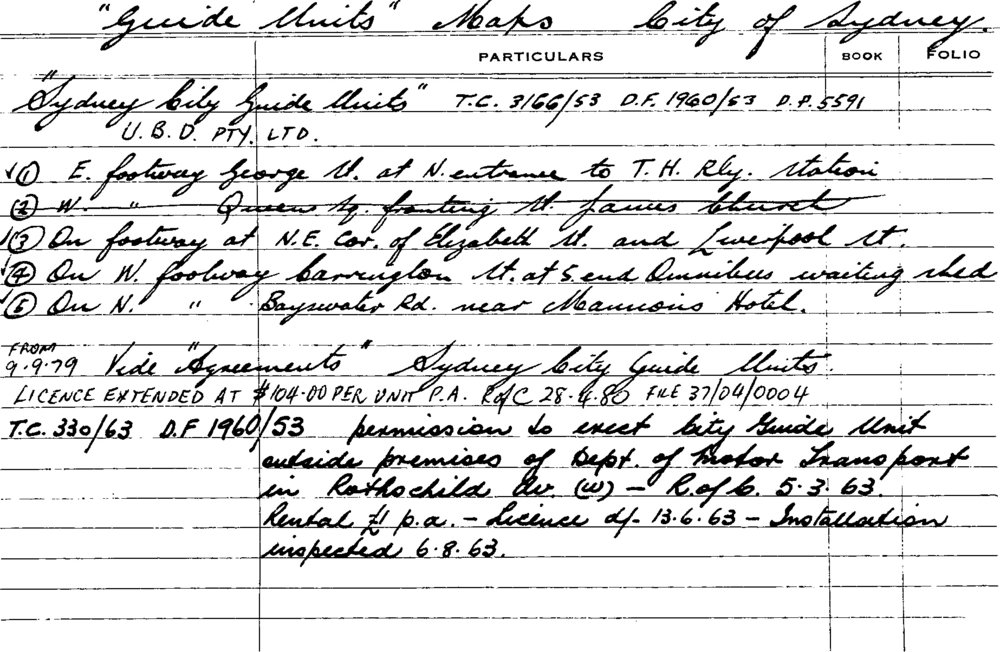 "Guide Units" Maps City of Sydney.
PARTICULARS BOOK FOLIO
"Sydney City Guide Units" T.C. 3166/53 D.F. 1960/53 D.P. 5591
U.B.D. PTY. LTD.
✓① E. footway George St. at N. entrance to T.H. Rly. Station
② W. " Queens Sq. fronting St. James Church
✓③ On footway at N.E. Cor. of Elizabeth St. and Liverpool St.
✓④ On W. footway Carrington St. at S. end Omnibus waiting shed
✓⑤ On N. " Bayswater Rd. near Mannons Hotel.
FROM
9.9.79 Vide "Agreements" Sydney City Guide Units.
LICENCE EXTENDED AT $104.00 PER UNIT P.A. RofC 28.4.80 FILE 37/04/0004
T.C. 330/63 D.F 1960/53 permission to erect City Guide Unit
outside premises of Dept. of Motor Transport
in Rothschild Av. (W) – R. of C. 5.3.63.
Rental £1 p.a. – Licence d/- 13.6.63 – Installation
inspected 6.8.63.